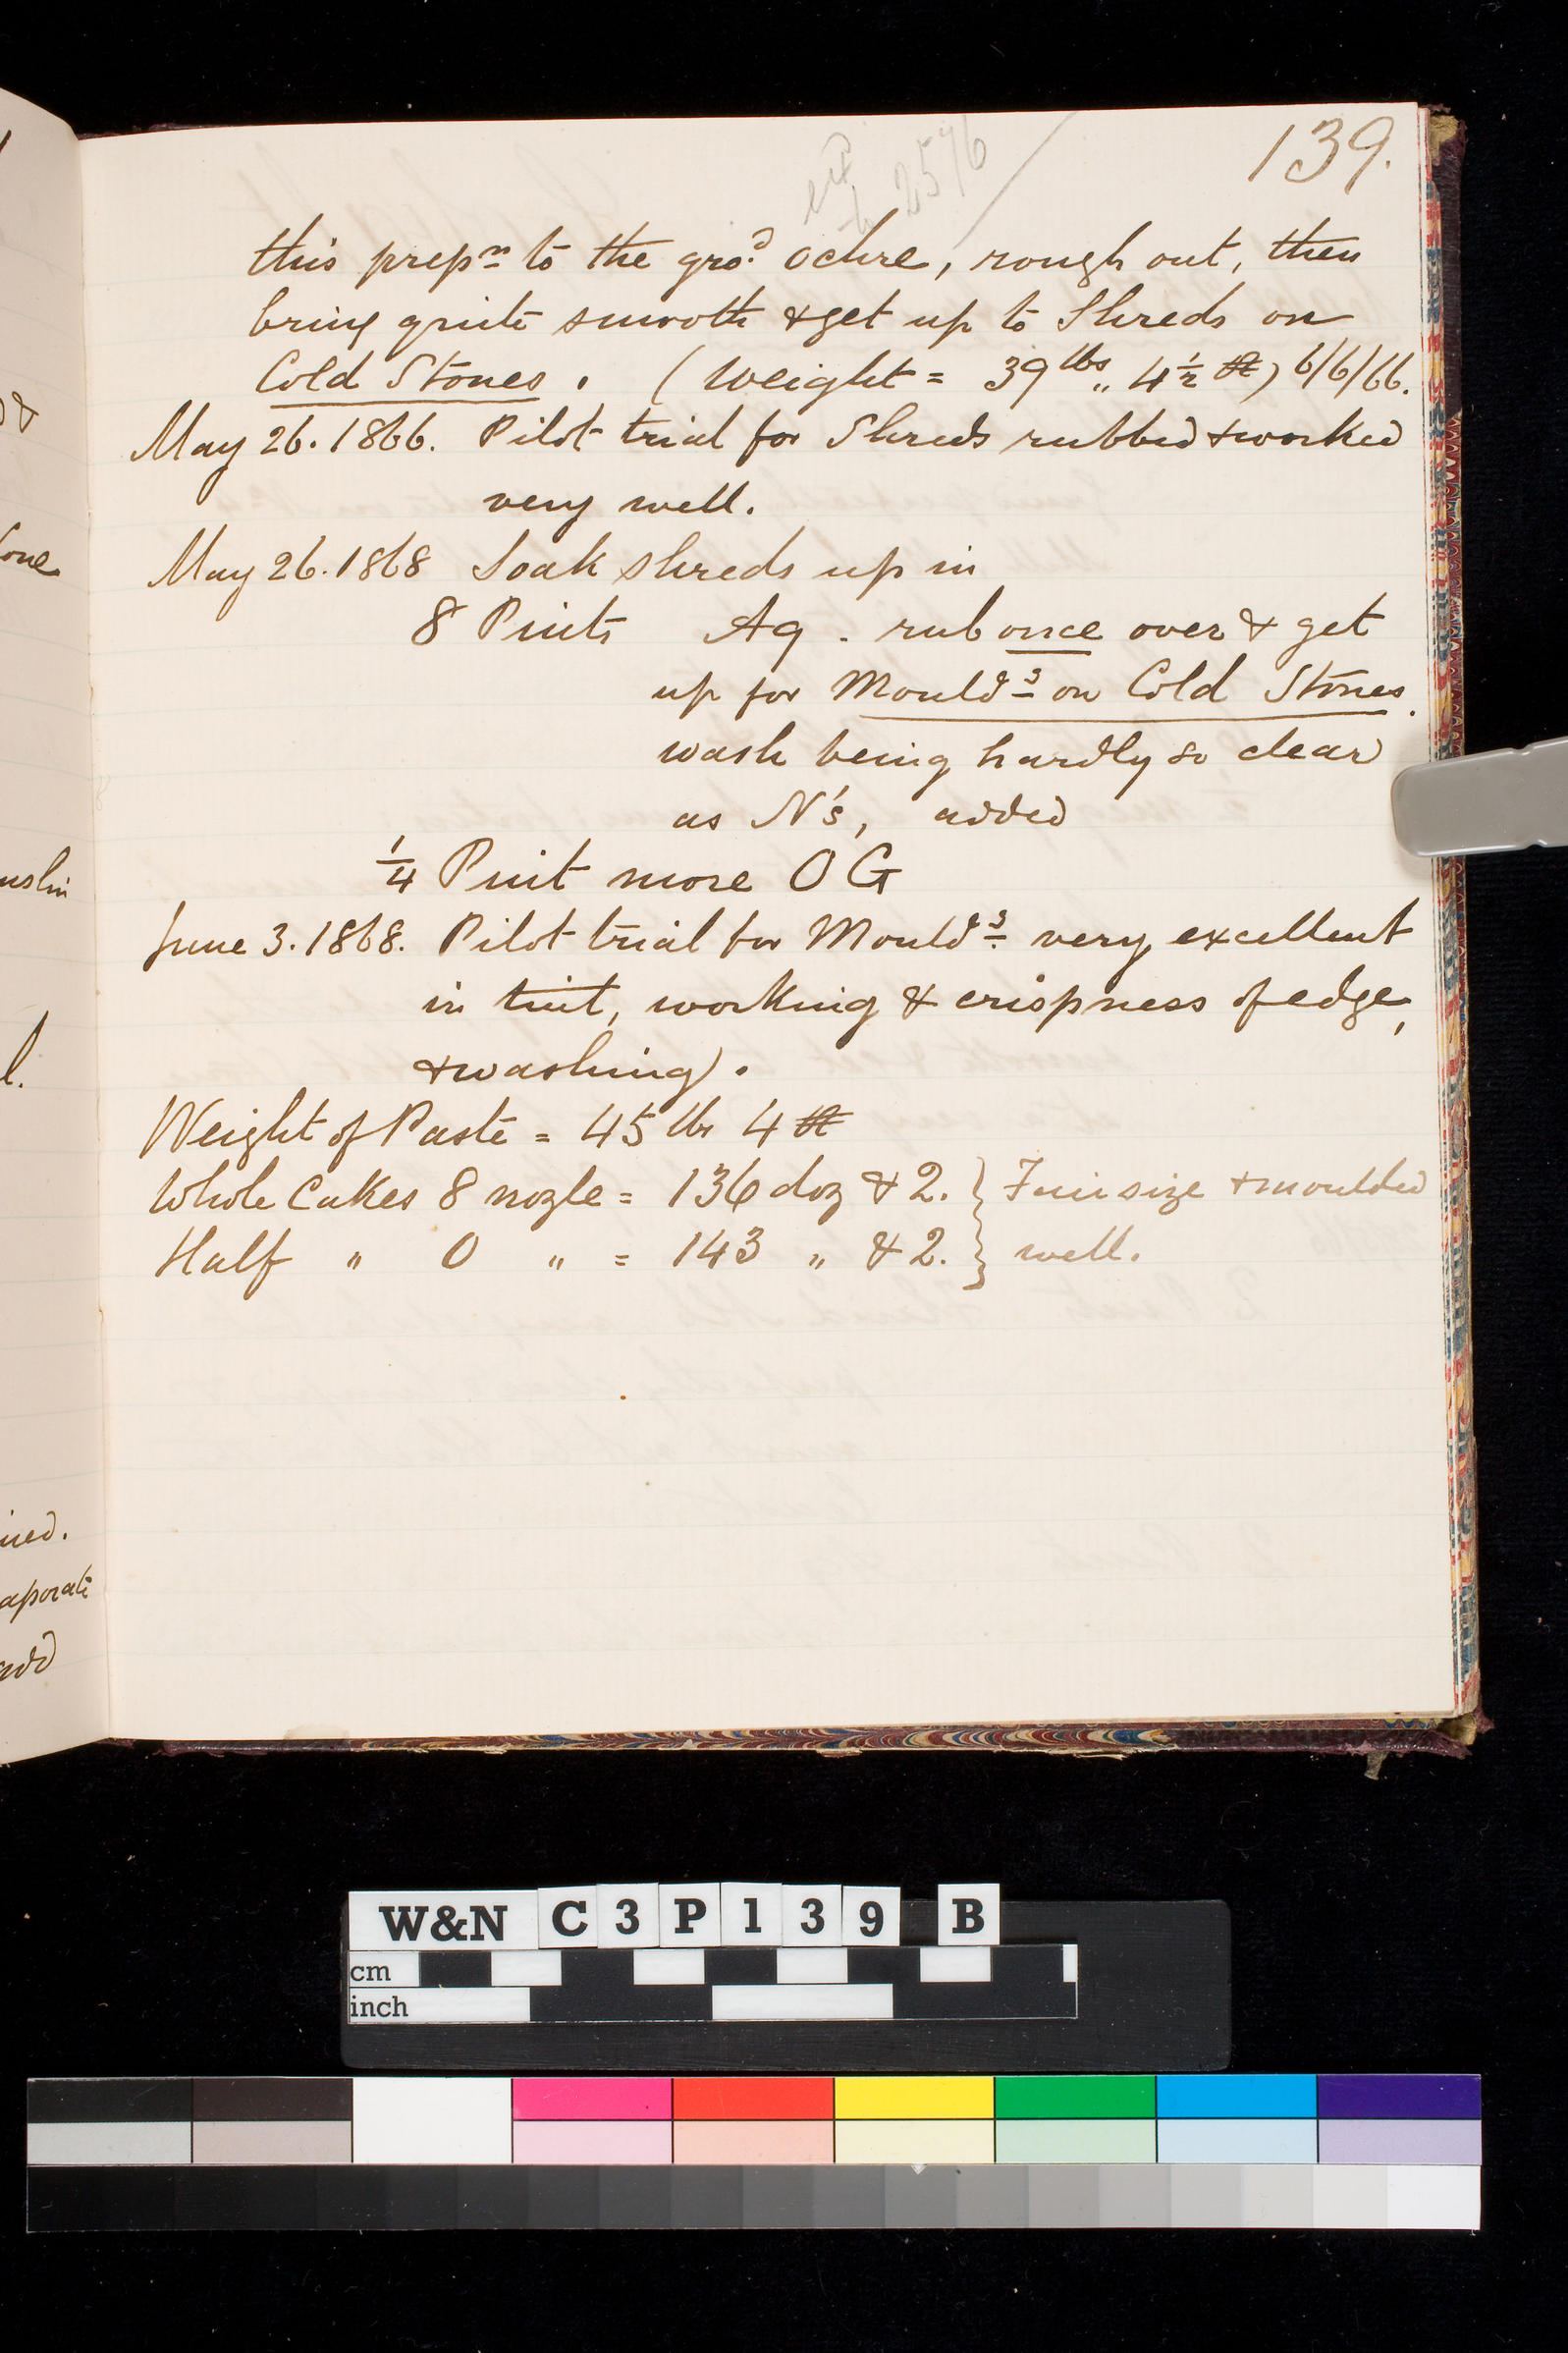 139.
2576
this prep<sup>n</sup> to the gro<sup>d</sup> ochre, rough out, then
bring quite smooth & get up to Shreds on
Cold Stones. (Weight = 39 lbs „ 4½ ) 6/6/66.
May 26. 1866. Pilot trial for Shreds rubbed & worked
very well.
May 26. 1868 Soak shreds up in
8 Pints Aq. rub once over & get
up for Mould<sup>g</sup> on Cold Stones.
wash being hardly so clear
as N's, added
¼ Pint more O G
June 3. 1868. Pilot trial for Mould<sup>g</sup> very excellent
in tint, working & crispness of edge,
& washing).
Weight of Paste = 45 lbs 4
Whole Cakes 8 nozle = 136 doz & 2. } Fair size & moulded
Half „ O „ = 143 „ & 2. } well.
&
Tone
uslin
l.
ined.
aporate
add
W&N C3P139 B
cm
inch